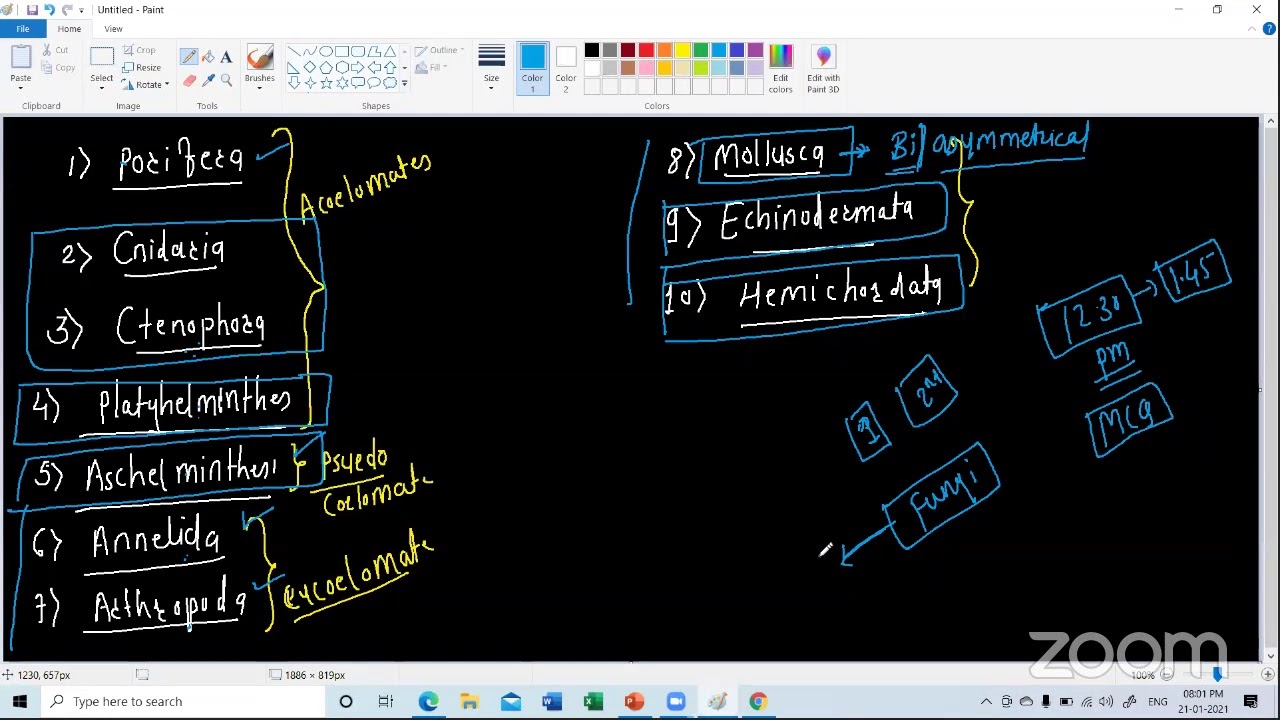 Untitled - Paint
File
Home
View
Paste
Cut
Copy
Clipboard
Select
Crop
Resize
Rotate
Image
Tools
Brushes
Shapes
Outline
Fill
Size
Color 1
Color 2
Colors
Edit colors
Edit with Paint 3D
1) Porifera
2) Cnidaria
3) Ctenophora
4) Platyhelminthes
Acoelomates
5) Aschelminthesi
Psuedo
Coelomate
6) Annelida
7) Arthropoda
8) Mollusca
Bi/asymmetrical
9) Echinodermata
10) Hemichordata
12.30
1.45
pm
MCQ
2nd
Fungi
zoom
1230, 657px
1886 × 819px
100%
Type here to search
ENG
08:01 PM
21-01-2021